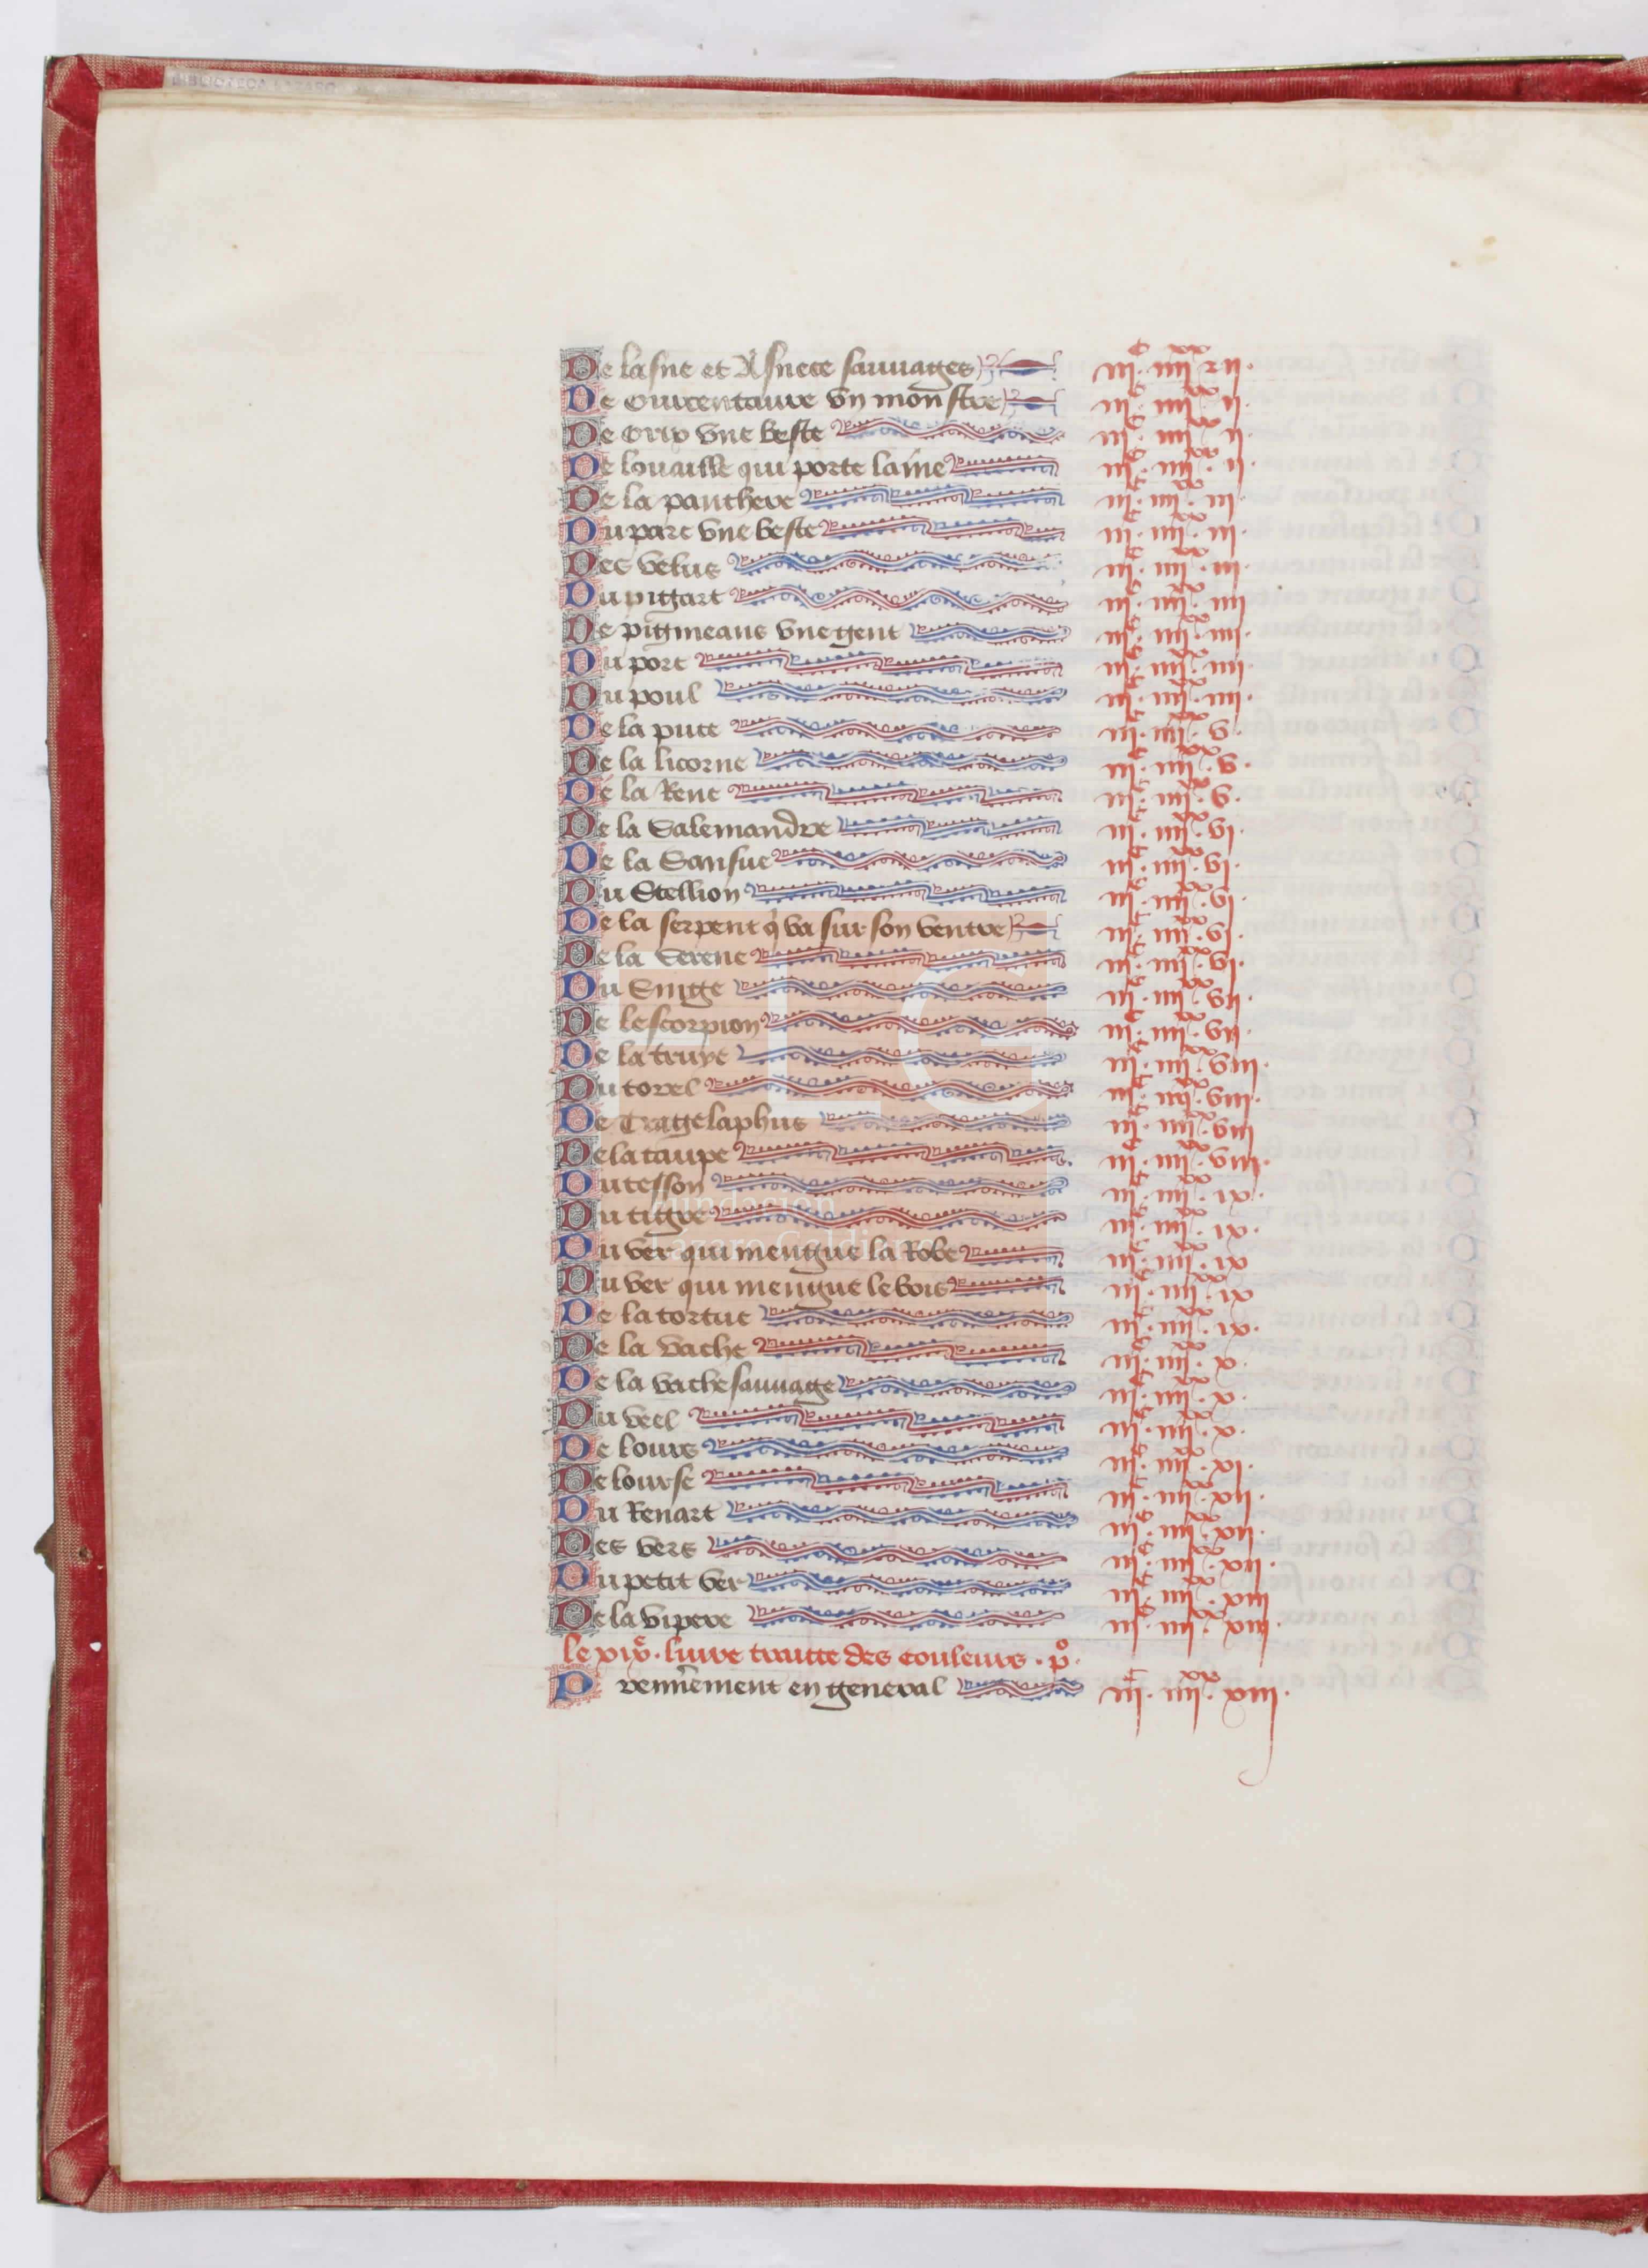 BIBLIOTECA LAZARO
De lasne et Asnece sauuages iii.c iiii.xx ii.
De Onixentaure vn monstre iii.c iiii.xx ii.
De Orix vne beste iii.c iiii.xx ii.
De louaille qui porte laine iii.c iiii.xx ii.
De la panthere iii.c iiii.xx iii.
Du parc vne beste iii.c iiii.xx iii.
Des velus iii.c iiii.xx iii.
Du pigart iii.c iiii.xx iiii
De pigmeans vne gent iii.c iiii.xx iiii.
Du porc iii.c iiii.xx iiii.
Du poul iii.c iiii.xx iiii.
De la puce iii.c iiii.xx v.
De la licorne iii.c iiii.xx v.
De la Rene iii.c iiii.xx v.
De la Salemandre iii.c iiii.xx vi.
De la Sansue iii.c iiii.xx vi.
Du Stellion iii.c iiii.xx vi.
De la serpent q̇ va sur son ventre iii.c iiii.xx vi.
De la Serene iii.c iiii.xx vi.
Du Singe iii.c iiii.xx vii.
De lescorpion iii.c iiii.xx vii.
De la truye iii.c iiii.xx viii.
Du torel iii.c iiii.xx viii.
De Tragelaphus iii.c iiii.xx viii
De la taupe iii.c iiii.xx viii.
Du tesson iii.c iiii.xx ix.
Du tigre iii.c iiii.xx ix.
Du ver qui mengue la Robe iii.c iiii.xx ix
Du ver qui mengue le bois iii.c iiii.xx ix
De la tortue iii.c iiii.xx ix.
De la vache iii.c iiii.xx x.
De la vache sauuage iii.c iiii.xx x.
Du veel iii.c iiii.xx x.
De lours iii.c iiii.xx xi.
De lourse iii.c iiii.xx xii.
Du Renart iii.c iiii.xx xii.
Des vers iii.c iiii.xx xii.
Du petit ver iii.c iiii.xx xiii
De la vipere iii.c iiii.xx xiii.
le xixe. liure traitte des couleurs. po.
Prennement en general iii.c iiii.xx xiii.
FLG
Fundación
Lázaro Galdiano